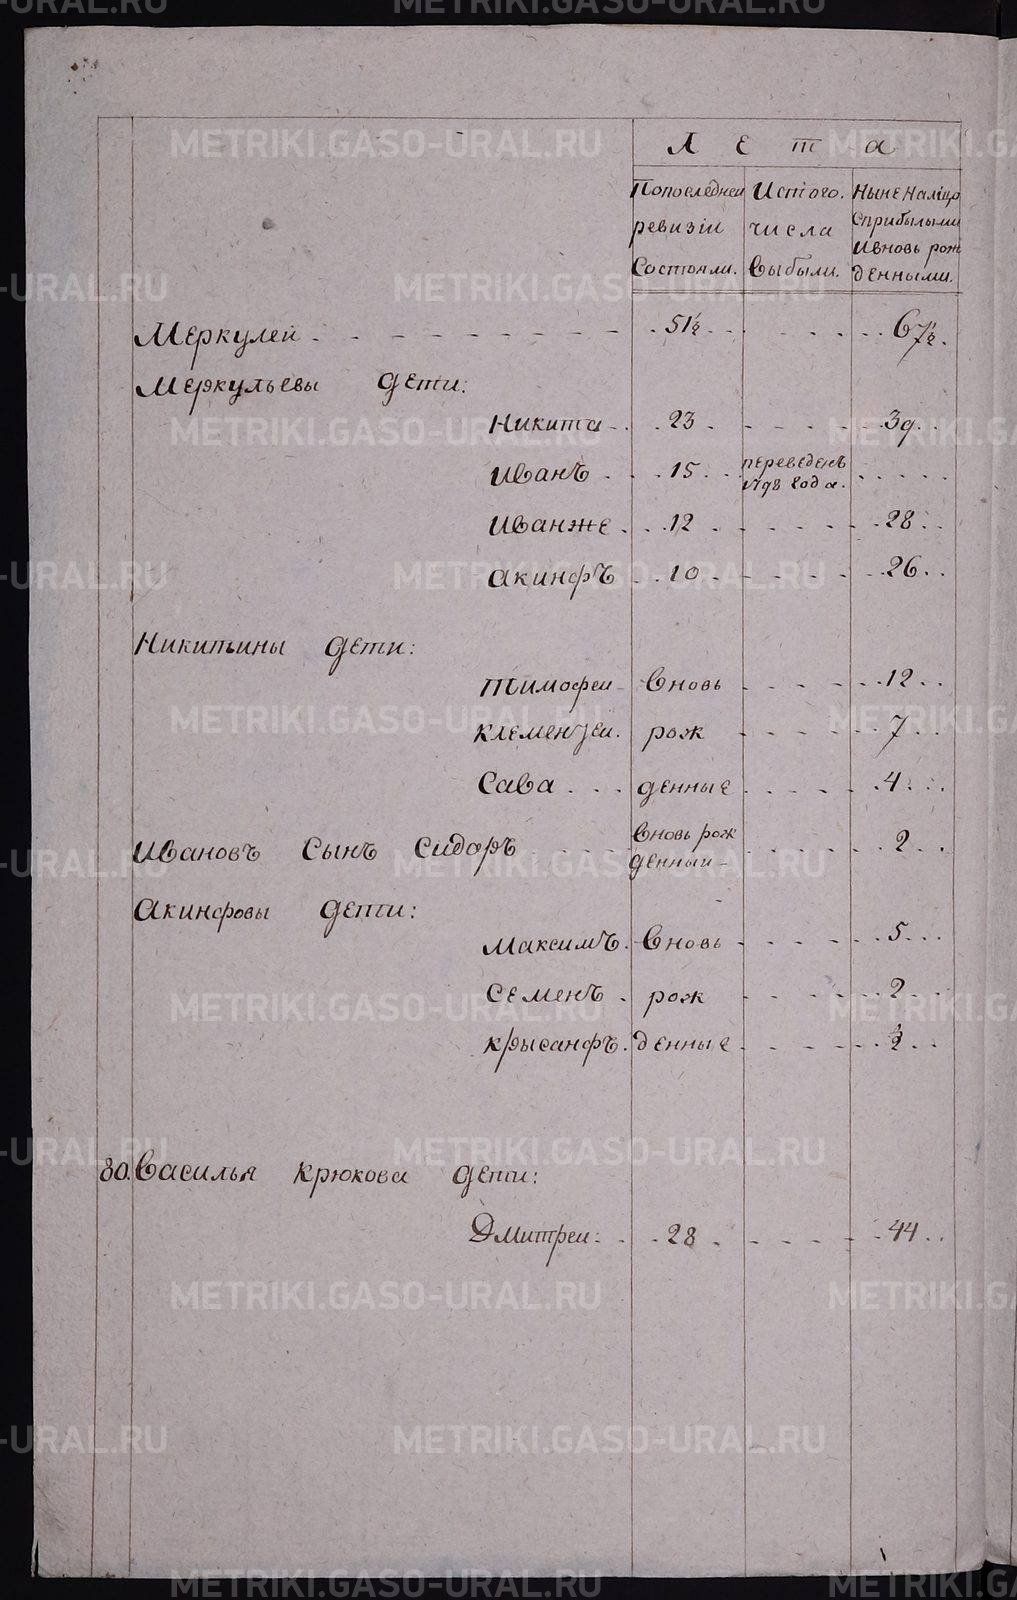 Лета
Попоследней ревизiи Состояли.
Истого. числа выбыли.
Ныне налицо Сприбылыми ивновь рож денными.
Меркулей 51½ 67½.
Меркульевы дети:
Никита 23 39
Иванъ 15 переведенъ 1798 года.
Иванже 12 28
Акинфъ 10 26
Никитины дети:
Тимофеи вновь 12
Клементеи. рож 7
Сава денные 4
Ивановъ Сынъ Сидоръ вновь рож денныи 2
Акинфовы дети:
Максимъ. вновь 5
Семенъ. рож 2
Крысанфъ. денные ½
80. Василья Крюкова дети:
Дмитреи: 28 44
METRIKI.GASO-URAL.RU